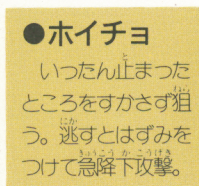 ●ホイチョ
いったん止まった
ところをすかさず狙
う。逃すとはずみを
つけて急降下攻撃。